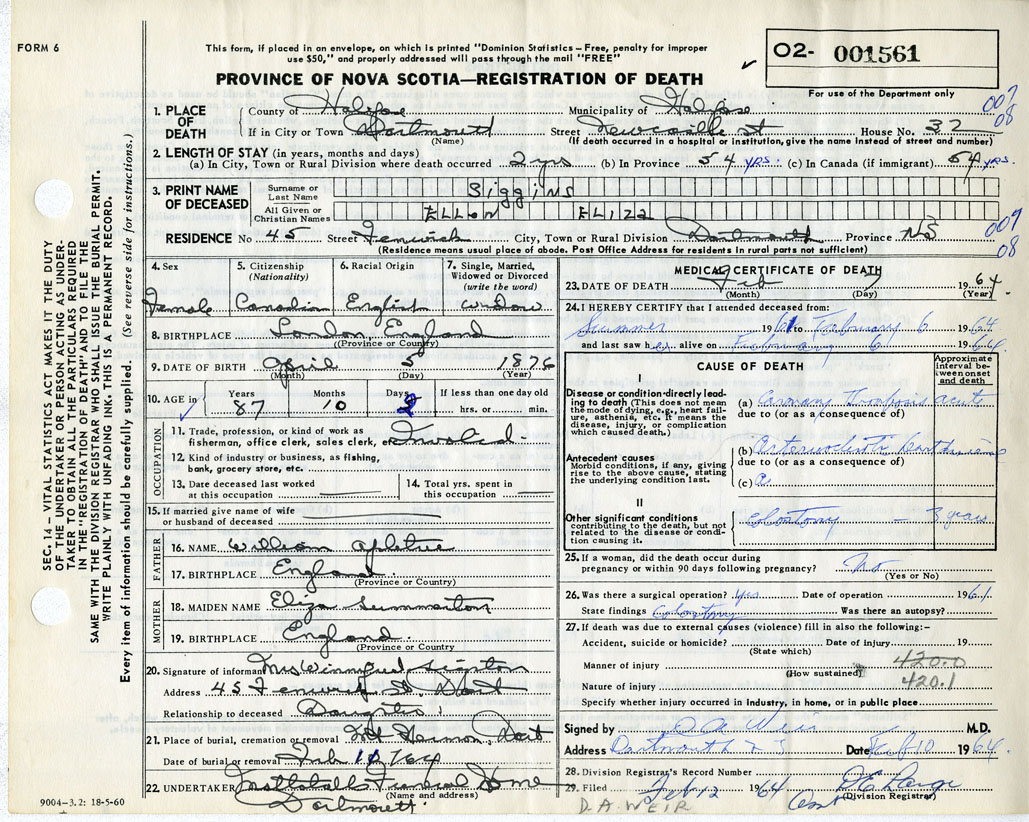 FORM 6
This form, if placed in an envelope, on which is printed "Dominion Statistics – Free, penalty for improper
use $50," and properly addressed will pass through the mail "FREE"
PROVINCE OF NOVA SCOTIA—REGISTRATION OF DEATH
✓
O2- 001561
For use of the Department only
007
08
1. PLACE OF DEATH { County of Halifax Municipality of Halifax
If in City or Town Dartmouth (Name) Street Newcastle St House No. 32
(If death occurred in a hospital or institution, give the name instead of street and number)
2. LENGTH OF STAY (in years, months and days)
(a) In City, Town or Rural Division where death occurred 2 yrs (b) In Province 54 yrs. (c) In Canada (if immigrant) 54 yrs.
3. PRINT NAME OF DECEASED
Surname or Last Name Biggins
All Given or Christian Names Ellen Eliza
009
08
RESIDENCE No 45 Street Fenwick City, Town or Rural Division Dartmouth Province NS
(Residence means usual place of abode. Post Office Address for residents in rural parts not sufficient)
4. Sex Female
5. Citizenship (Nationality) Canadian
6. Racial Origin English
7. Single, Married, Widowed or Divorced (write the word) Widow
8. BIRTHPLACE London England
(Province or Country)
9. DATE OF BIRTH April 5 1876
(Month) (Day) (Year)
10. AGE in ✓ Years 87 Months 10 Days 2 If less than one day old hrs. or min.
OCCUPATION
11. Trade, profession, or kind of work as fisherman, office clerk, sales clerk, Invalid.
12. Kind of industry or business, as fishing, bank, grocery store, etc.
13. Date deceased last worked at this occupation
14. Total yrs. spent in this occupation
15. If married give name of wife or husband of deceased
FATHER
16. NAME William
17. BIRTHPLACE England
(Province or Country)
MOTHER
18. MAIDEN NAME Eliza Summerton
19. BIRTHPLACE England.
(Province or Country)
20. Signature of informant Mrs Winnifred
Address 45 Fenwick St. Dart
Relationship to deceased Daughter
21. Place of burial, cremation or removal Mt Hermon, Dart
Date of burial or removal Feb 10/64
22. UNDERTAKER Funeral Home
(Name and address)
Dartmouth.
9004-3.2: 18-5-60
MEDICAL CERTIFICATE OF DEATH
23. DATE OF DEATH Feb 7 1964
(Month) (Day) (Year)
24. I HEREBY CERTIFY that I attended deceased from:
Summer 1961 to February 6 1964
and last saw her alive on February 6 1964.
CAUSE OF DEATH
Approximate interval between onset and death
I
Disease or condition directly leading to death (This does not mean the mode of dying, e.g., heart failure, asthenia, etc. It means the disease, injury, or complication which caused death.)
(a) Coronary Thrombosis acute
due to (or as a consequence of)
Antecedent causes
Morbid conditions, if any, giving rise to the above cause, stating the underlying condition last.
(b) Arteriosclerotic heart disease
due to (or as a consequence of)
(c)
II
Other significant conditions contributing to the death, but not related to the disease or condition causing it.
Colostomy – 3 years.
25. If a woman, did the death occur during pregnancy or within 90 days following pregnancy? No
(Yes or No)
26. Was there a surgical operation? Yes. Date of operation 1961.
State findings Colostomy Was there an autopsy?
27. If death was due to external causes (violence) fill in also the following:–
Accident, suicide or homicide? Date of injury 19
(State which)
Manner of injury 420.0
(How sustained)
Nature of injury 420.1
Specify whether injury occurred in industry, in home, or in public place
Signed by D A Weir M.D.
Address Dartmouth N S Date Feb 10 1964.
28. Division Registrar's Record Number
29. Filed Feb 12 1964
(Division Registrar)
D A WEIR Asst
SEC. 14 – VITAL STATISTICS ACT MAKES IT THE DUTY
OF THE UNDERTAKER OR PERSON ACTING AS UNDER-
TAKER TO OBTAIN ALL THE PARTICULARS REQUIRED
IN THE "REGISTRATION OF DEATH" AND TO FILE THE
SAME WITH THE DIVISION REGISTRAR WHO SHALL ISSUE THE BURIAL PERMIT.
WRITE PLAINLY WITH UNFADING INK. THIS IS A PERMANENT RECORD.
Every item of information should be carefully supplied. (See reverse side for instructions.)